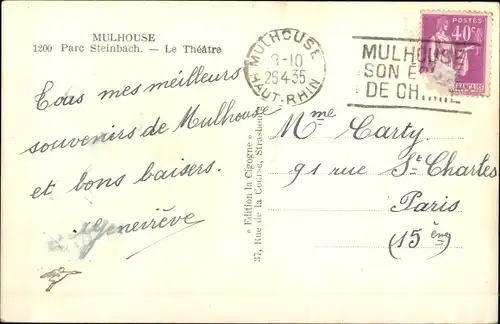 MULHOUSE
1200 Parc Steinbach. — Le Théâtre
Tous mes meilleurs
souvenirs de Mulhouse
et bons baisers.
Geneviève
« Edition la Cigogne »
37, Rue de la Course, Strasbourg
MULHOUSE
9-10
26-4-35
HAUT-RHIN
MULHOUSE
SON
DE CHIMIE
POSTES
40c
FRANÇAISE
Mme Carty
91 rue St Charles
Paris
(15ème)